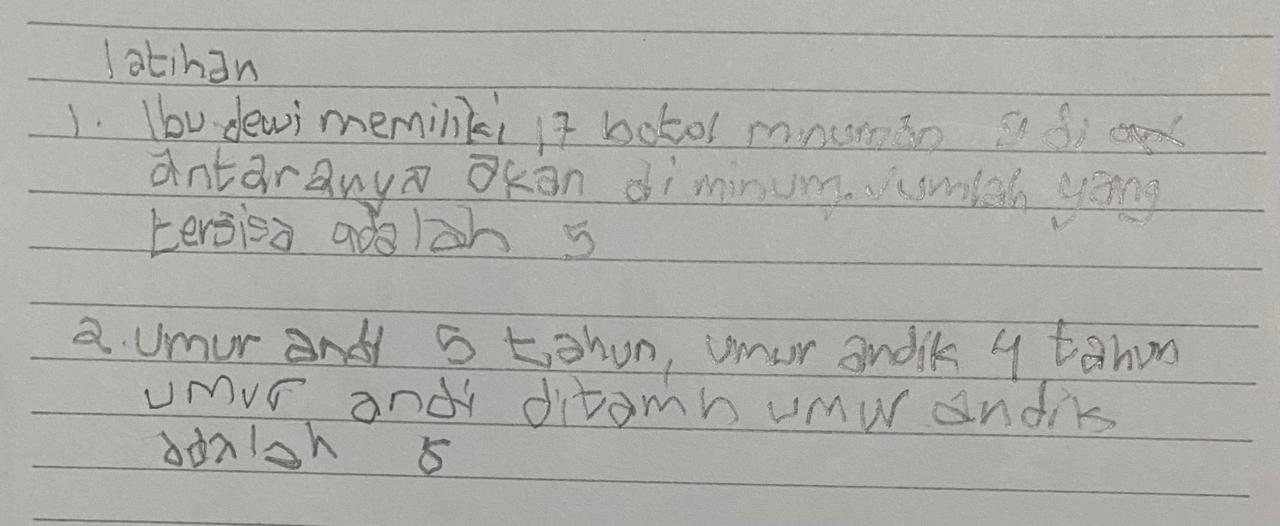 latihan
1. Ibu dewi memiliki 17 botol minuman 9 di
antaranya akan di minum. Jumlah yang
tersisa adalah 5
2. Umur andi 5 tahun, umur andik 4 tahun
umur andi ditamh umur andik
adalah 5